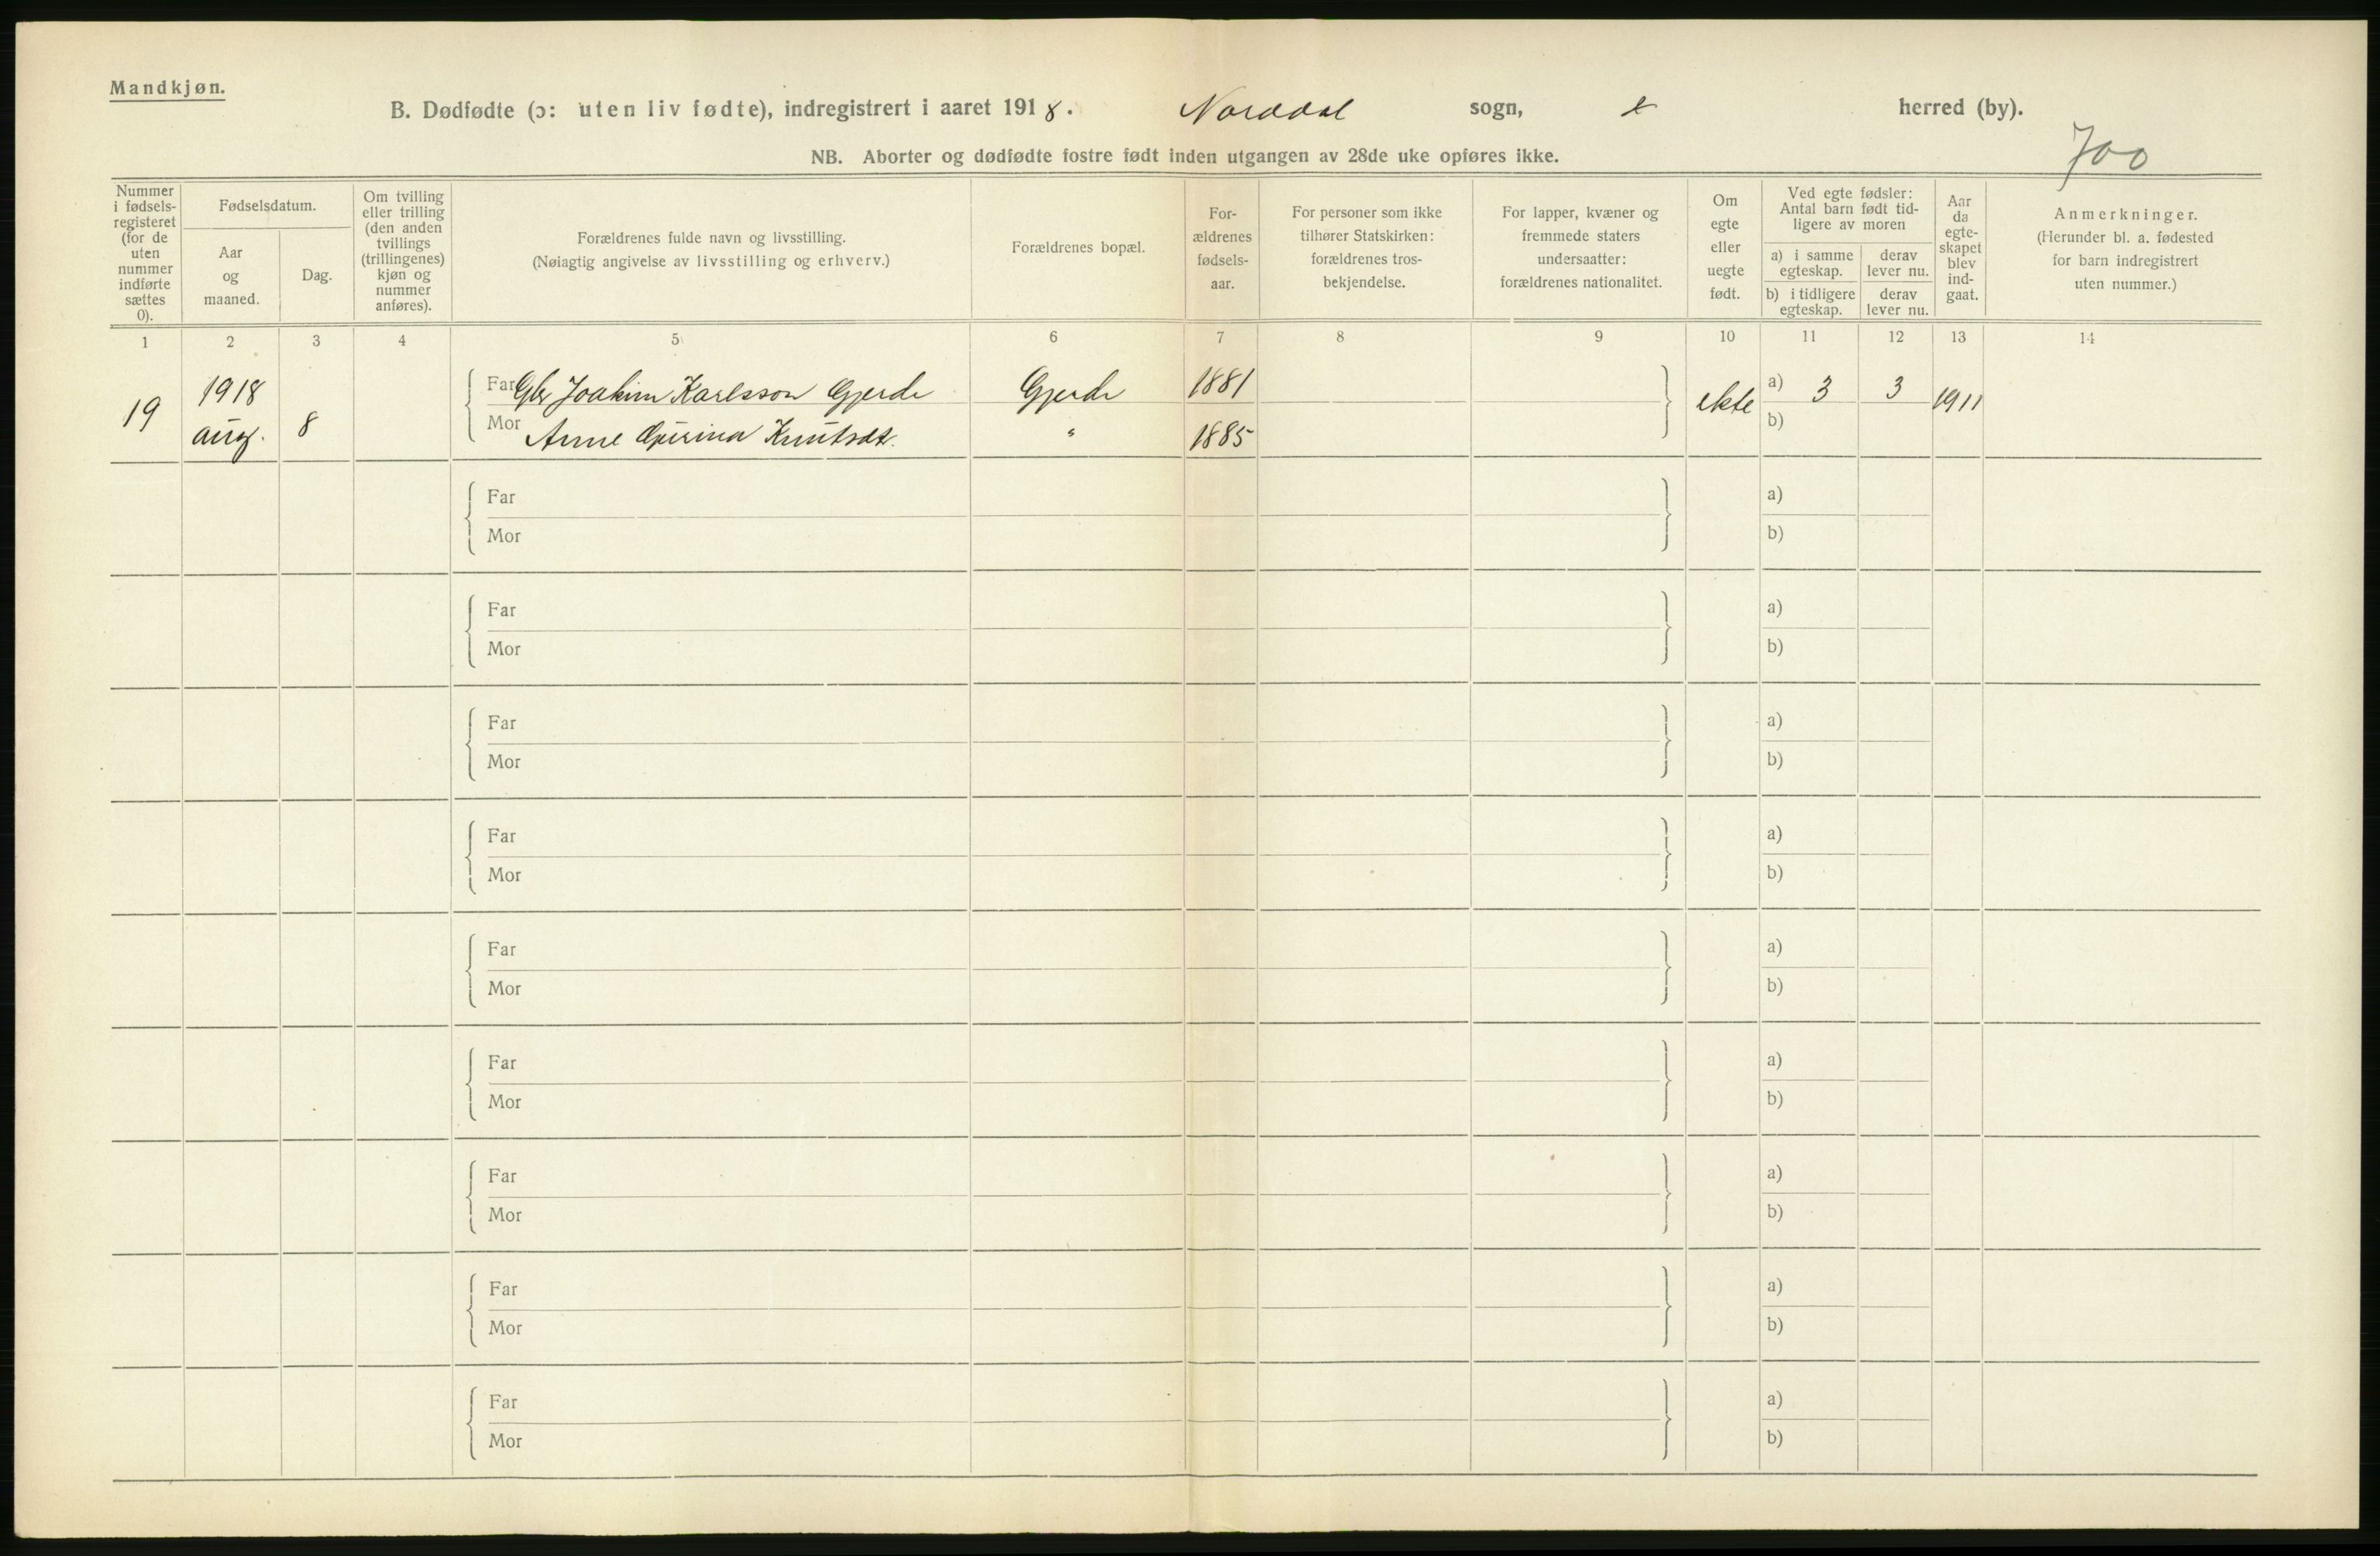 Mandkjøn.
B. Dødfødte (ɔ: uten liv fødte), indregistrert i aaret 1918. Norddal sogn, herred (by).
700
NB. Aborter og dødfødte fostre født inden utgangen av 28de uke opføres ikke.
Nummer i fødsels-registeret (for de uten nummer indførte sættes 0).
Fødselsdatum.
Aar og maaned.
Dag.
Om tvilling eller trilling (den anden tvillings (trillingenes) kjøn og nummer anføres).
Forældrenes fulde navn og livsstilling.
(Nøiagtig angivelse av livsstilling og erhverv.)
Forældrenes bopæl.
For-ældrenes fødsels-aar.
For personer som ikke tilhører Statskirken: forældrenes tros-bekjendelse.
For lapper, kvæner og fremmede staters undersaatter: forældrenes nationalitet.
Om egte eller uegte født.
Ved egte fødsler: Antal barn født tid-ligere av moren
a) i samme egteskap.
derav lever nu.
b) i tidligere egteskap.
derav lever nu.
Aar da egte-skapet blev ind-gaat.
Anmerkninger.
(Herunder bl. a. fødested for barn indregistrert uten nummer.)
1 2 3 4 5 6 7 8 9 10 11 12 13 14
19 1918 aug. 8 Far Gbr Joakim Karlsson Gjerde Gjerde 1881 ekte a) 3 3 1911
Mor Anne Knutsdt. " 1885 b)
Far a)
Mor b)
Far a)
Mor b)
Far a)
Mor b)
Far a)
Mor b)
Far a)
Mor b)
Far a)
Mor b)
Far a)
Mor b)
Far a)
Mor b)
Far a)
Mor b)